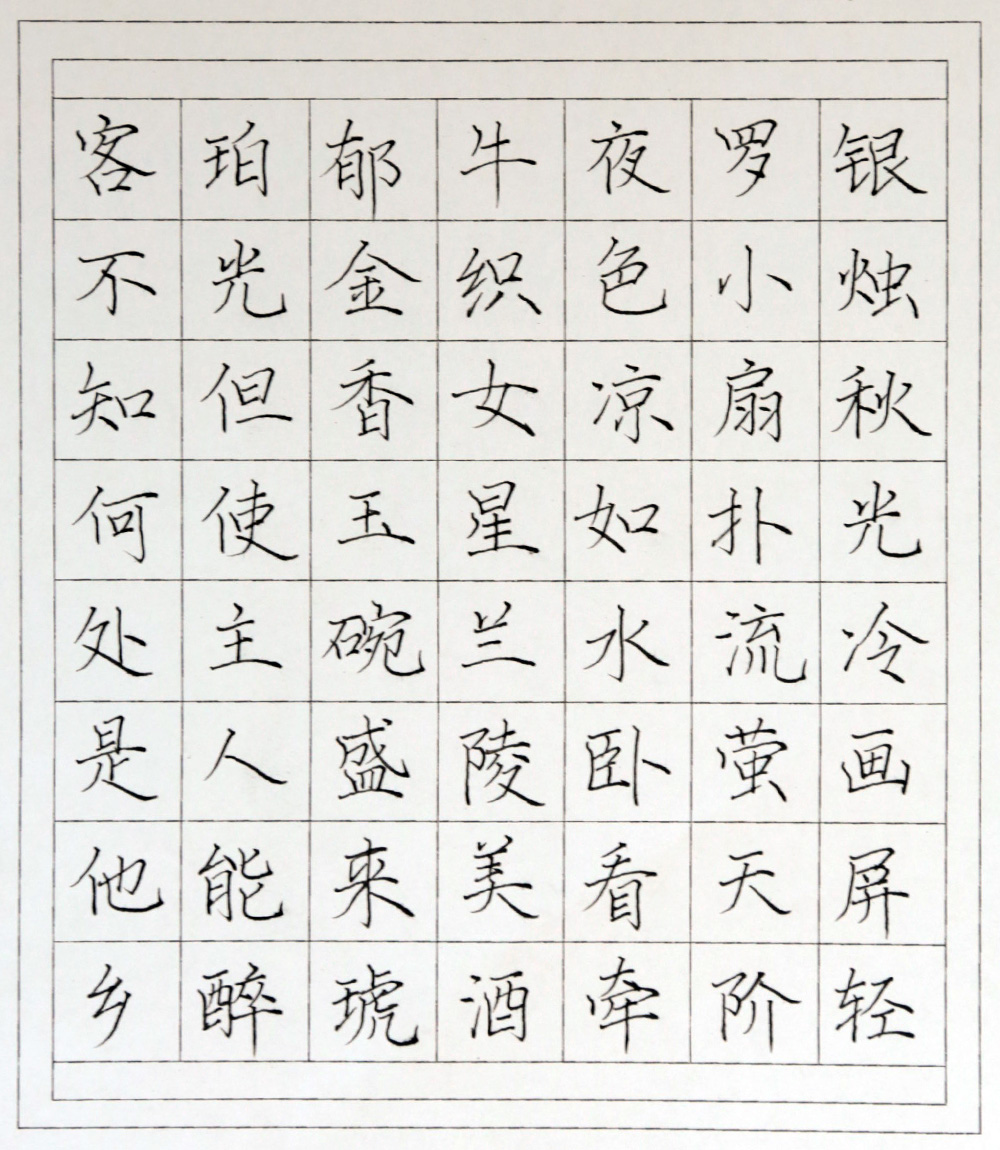 银烛秋光冷画屏轻
罗小扇扑流萤天阶
夜色凉如水卧看牵
牛织女星兰陵美酒
郁金香玉碗盛来琥
珀光但使主人能醉
客不知何处是他乡